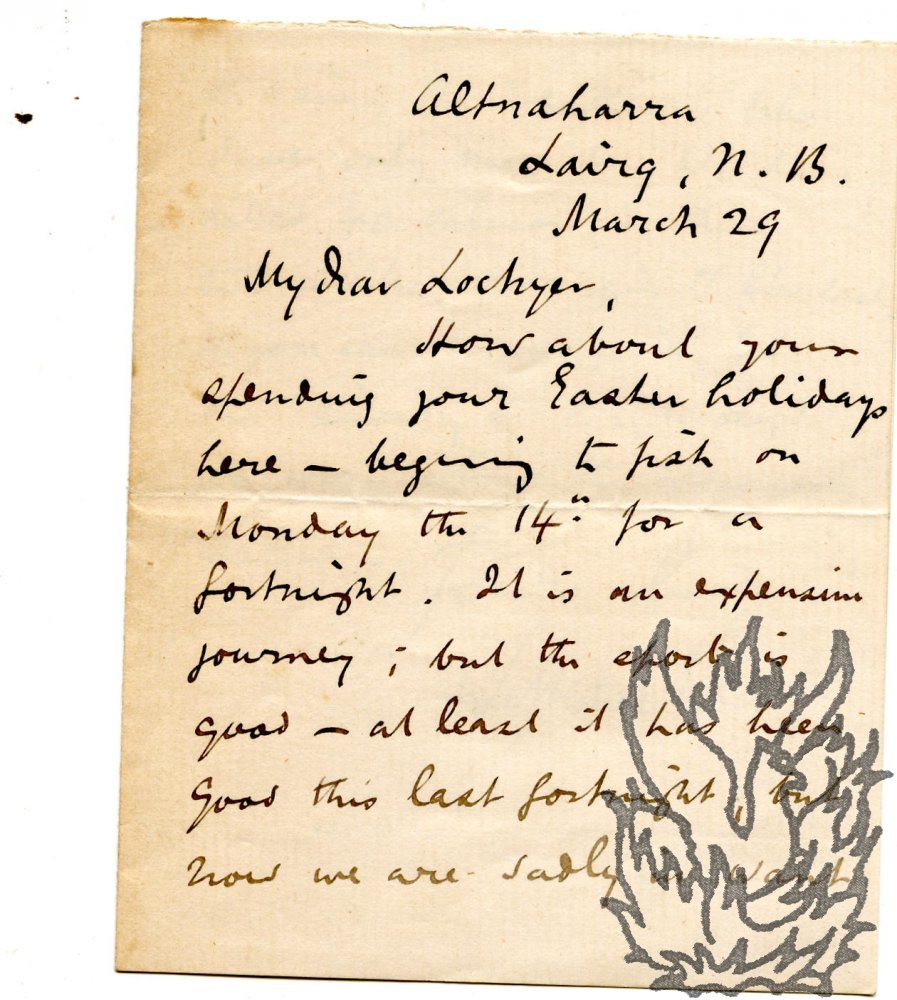 Altnaharra
Lairg, N. B.
March 29
My dear Lockyer,
How about your
spending your Easter holidays
here – begining to fish on
Monday the 14th for a
fortnight. It is an expensive
journey; but the sport is
good – at least it has been
good this last fortnight, but
now we are sadly in want